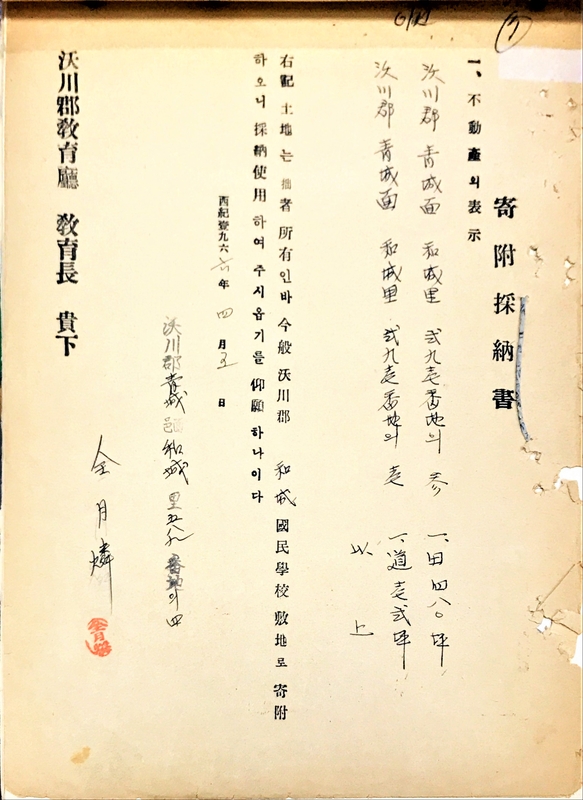 寄附採納書
一、不動產의表示
沃川郡 青城面 和城里 弍九壱番地의 参 一、田 四八〇坪
沃川郡 青城面 和城里 弍九壱番地의 壱 一、道 壱弍坪
以上
右記 土地는 拙者 所有인바 今般 沃川郡 和城 國民學校 敷地로 寄附
하오니 採納使用하여 주시옵기를 仰願하나이다
西紀壹九六六年 四月 五日
沃川郡青城 面 和城 里 番地의 四
金月燐
沃川郡敎育廳 敎育長 貴下